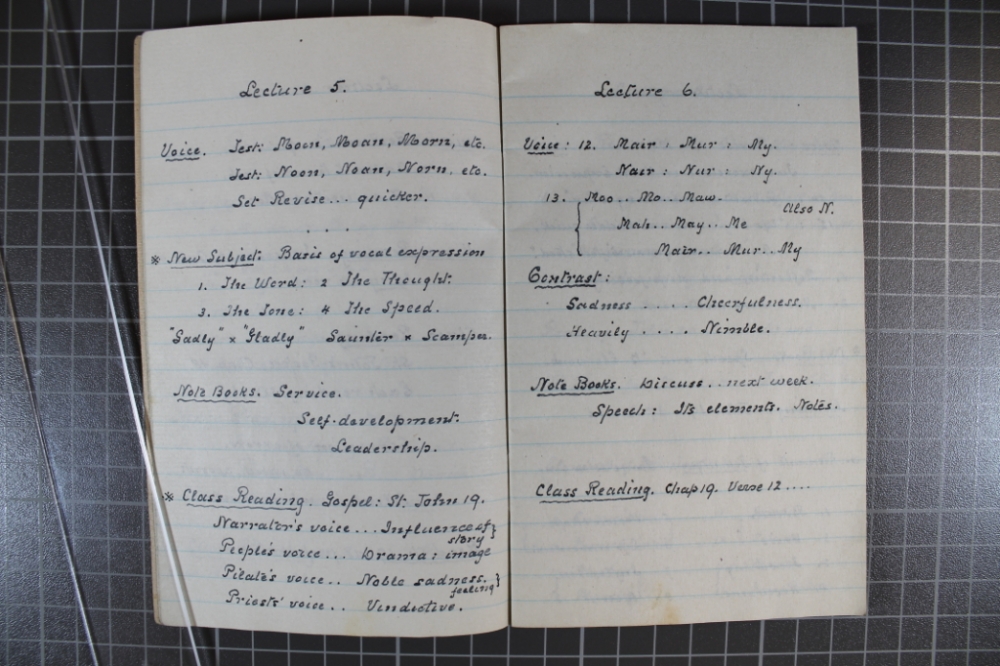 Lecture 5.
Voice. Test: Moon, Moan, Morn, etc.
Test: Noon, Noan, Norn. etc.
Set Revise... quicker.
. . .
* New Subject: Basis of vocal expression
1. The Word: 2 The Thought:
3. The Tone: 4 The Speed.
"Sadly" x "Gladly" Saunter x Scamper.
Note Books. Service.
Self-development.
Leadership.
* Class Reading. Gospel: St. John 19.
Narrator's voice... Influence of }
story
People's voice... Drama: image
Pilate's voice.. Noble sadness. }
feeling
Priests' voice.. Vindictive.
Lecture 6.
Voice: 12. Mair: Mur: My.
Nair: Nur: Ny.
13. Moo.. Mo.. Maw.
Also N.
{ Mah.. May.. Me
Mair.. Mur.. My
Contrast:
Sadness .... Cheerfulness.
Heavily .... Nimble.
Note Books. Discuss.. next week.
Speech: Its elements. Notes.
Class Reading. Chap 19. Verse 12....